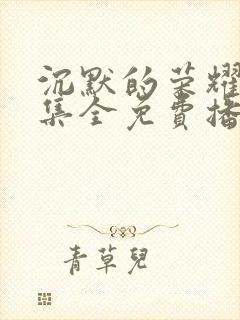 沉默的荣耀
集全免費播
青草兒